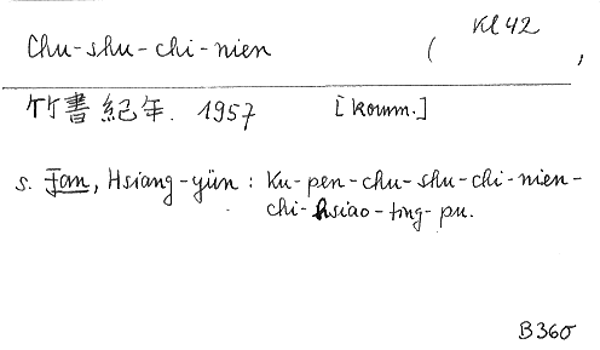 Kl 42
Chu-shu-chi-nien ( ,
竹書紀年. 1957 [komm.]
s. Fan, Hsiang-yün: Ku-pen-chu-shu-chi-nien-
chi-hsiao-ting-pu.
B360